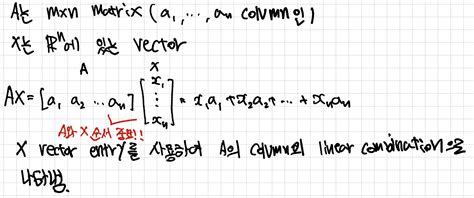 A는 mxn matrix (a₁, ..., aₙ column인)
X는 ℝⁿ에 있는 vector
A X
AX = [a₁ a₂ ... aₙ] [x₁ ⋮ xₙ] = x₁a₁ + x₂a₂ + ... + xₙaₙ
A와 X 순서 중요!!
X vector entry를 사용하여 A의 column의 linear combination을
나타냄.